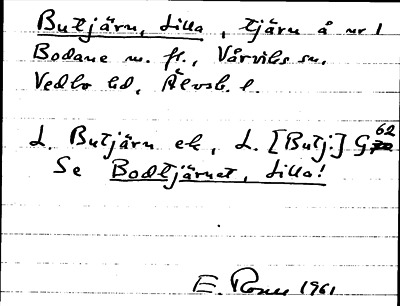 Butjärn, Lilla, tjärn å nr 1
Bodane m. fl., Vårviks sn.
Vedbo hd, Älvsb. l.
L. Butjärn ek, L. [Butj.] G 62
Se Bodtjärnet, Lilla!
E. 1961